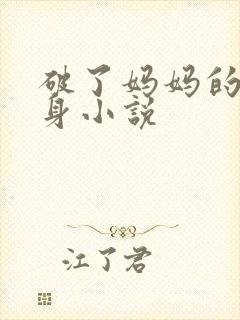 破了妈妈的
身小说
江了君